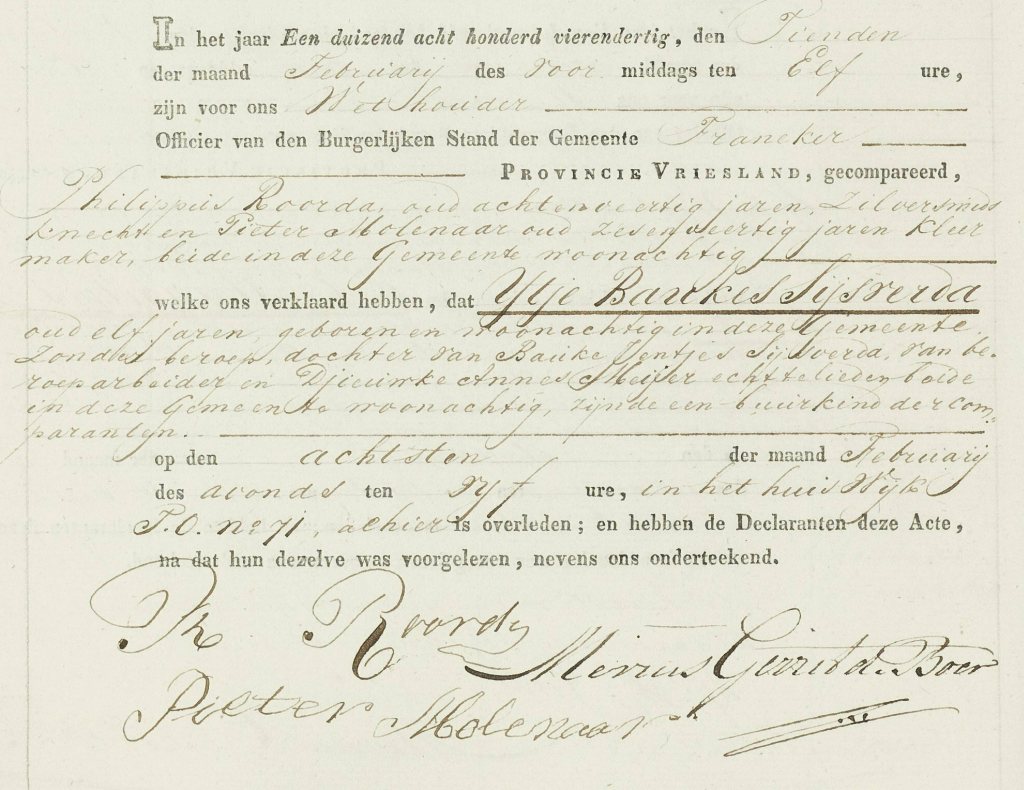 In het jaar Een duizend acht honderd vierendertig, den Tienden
der maand Februarij des voor middags ten Elf ure,
zijn voor ons Wethouder
Officier van den Burgerlijken Stand der Gemeente Franeker
PROVINCIE VRIESLAND, gecompareerd,
Philippus Roorda, oud achtenveertig jaren, Zilversmids
knecht en Pieter Molenaar oud zesenveertig jaren kleer
maker, beide in deze Gemeente woonachtig
welke ons verklaard hebben, dat Ytje Baukes Sijsverda
oud elf jaren, geboren en woonachtig in deze Gemeente,
Zonder beroep, dochter van Bauke Jentjes Sijsverda, van be-
roep arbeider en Djieuwke Annes Meijer echtelieden beide
in deze Gemeente woonachtig, zijnde een buurkind der com-
paranten.
op den achtsten der maand Februarij
des avonds ten vyf ure, in het huis Wijk
T.O. no 71, alhier is overleden; en hebben de Declaranten deze Acte,
na dat hun dezelve was voorgelezen, nevens ons onderteekend.
Ph Roorda
Gerrit d. Boer
Pieter Molenaar